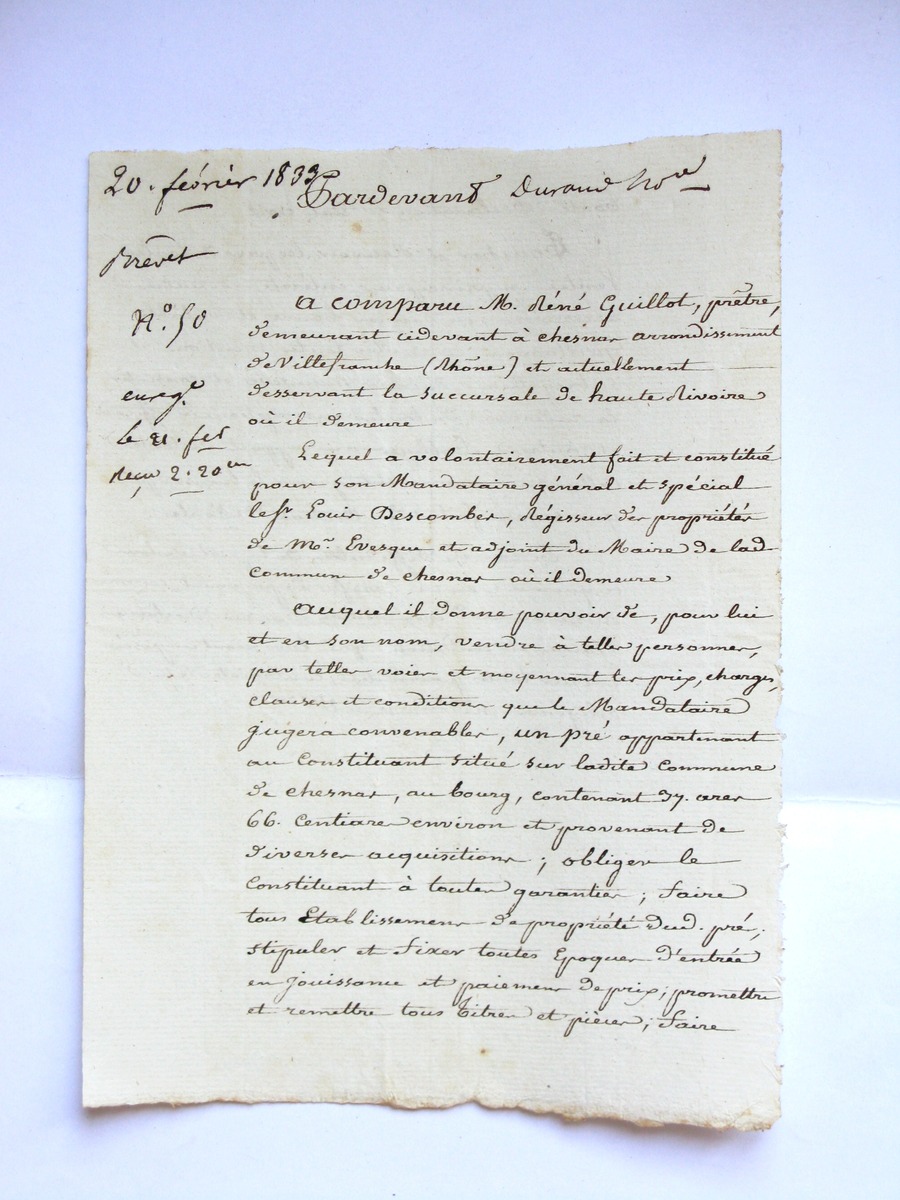 20. février 1833
Pardevant Durand Nre
Brevet
N.° 50
enreg.é
le 21. fer
Reçu 2. 20 cen
a comparu M. Réné Guillot, prêtre,
demeurant cidevant à chesnas arrondissement
de Villefranche (Rhône) et actuellement
desservant la succursale de haute Rivoire
où il demeure
Lequel a volontairement fait et constitué
pour son Mandataire général et spécial
le Sr. Louis Descombes, Régisseur des propriétés
de Mr. Evesque et adjoint du Maire de lad.
commune de chesnas où il demeure
auquel il donne pouvoir de, pour lui
et en son nom, vendre à telles personnes,
par telles voies et moyennant les prix, charges,
clauses et conditions que le Mandataire
jugera convenables, un pré appartenant
au Constituant situé sur ladite Commune
de chesnas, au bourg, contenant 37. ares
66. Centiares environ et provenant de
diverses acquisitions ; obliger le
Constituant à toutes garanties ; faire
tous Etablissemens de propriété dud. pré ;
stipuler et fixer toutes Epoques d'entrée
en jouissance et paiemens de prix ; promettre
et remettre tous titres et pièces ; faire